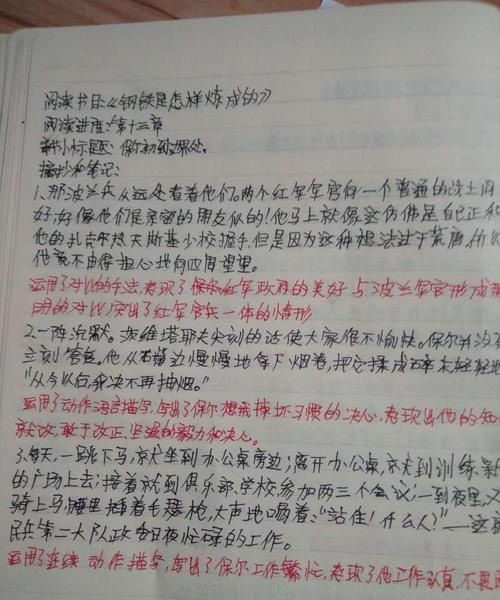 阅读书目:《钢铁是怎样炼成的》
阅读进度:第十三章
小标题:保尔初到
摘抄和笔记:
1、那波兰兵从远处看着他们。两个红军军官向一个普通的战士问
好,好像他们是亲密的朋友似的!他马上就像这仿佛是自己正和
他的扎克尔热夫斯基少校握手,但是因为这种想法过于荒唐,所以
他就不由得担心地向四周望望。
运用了对比的手法,表现了保尔红军政府的美好与波兰军官形成鲜
明的对比,突出了红军官兵一体的情形
2.一阵沉默。茨维塔耶夫尖刻的话使大家很不愉快。保尔并没有
立刻答复。他从嘴边慢慢地拿下烟卷,把它揉成碎末轻轻地
“从今以后我决不再抽烟。”
运用了动作语言描写,写出了保尔想戒掉坏习惯的决心,表现出他的知
就改,敢于改正,坚强的毅力和决心。
3、每天,一跳下马,就坐到办公桌旁边;离开办公桌,就去到训练新
的广场上去;接着就到俱乐部、学校,参加两三个会议;一到夜里,又
骑上马,腰里插着毛瑟枪,大声地喝着:“站住!什么人?”——这就
民兵第二大队政委日夜忙碌的工作。
运用了连续动作描写,写出了保尔工作繁忙,表现了他工作认真,不畏